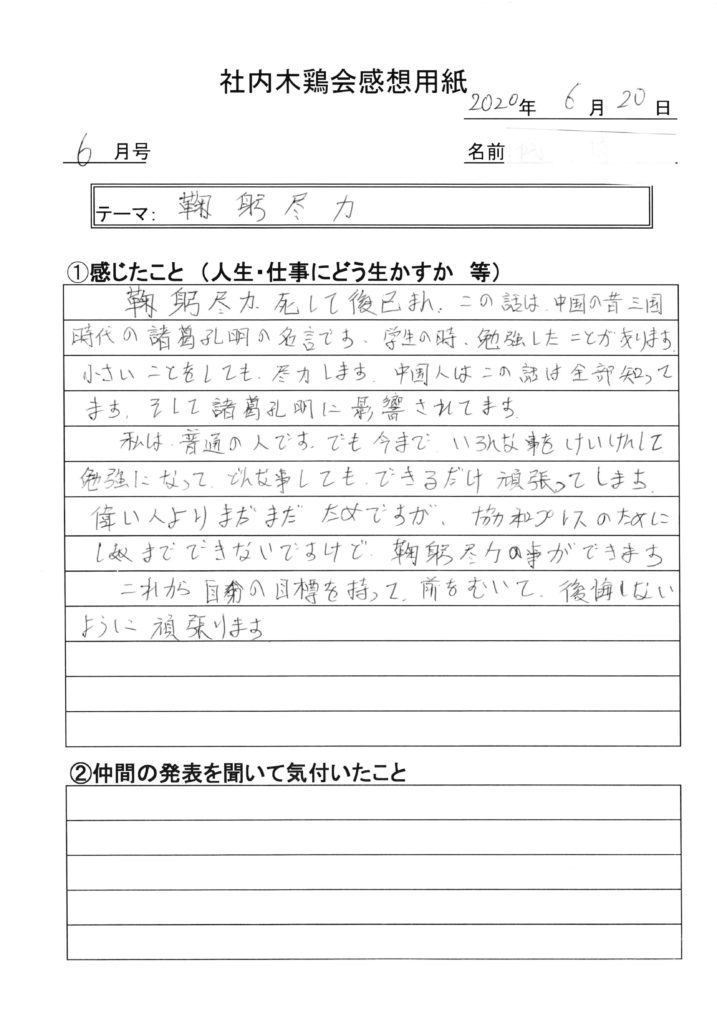 社内木鶏会感想用紙
2020年 6月20日
6月号 名前
テーマ： 鞠躬尽力
①感じたこと （人生・仕事にどう生かすか 等）
鞠躬尽力、死して後已まん。この話は、中国の昔三国
時代の諸葛孔明の名言です、学生の時、勉強したことがあります。
小さいことをしても、尽力します。中国人はこの話は全部知って
ます。そして諸葛孔明に影響されてます。
私は、普通の人です。でも今まで、いろんな事をけいけんして
勉強になって、どんな事しても、できるだけ頑張ってしまち
偉い人よりまだまだ ためですが、協和プレスのために
までできないですけど、鞠躬尽力の事ができまち
これから自分の目標を持って、前をむいて、後悔しない
ように頑張ります
②仲間の発表を聞いて気付いたこと